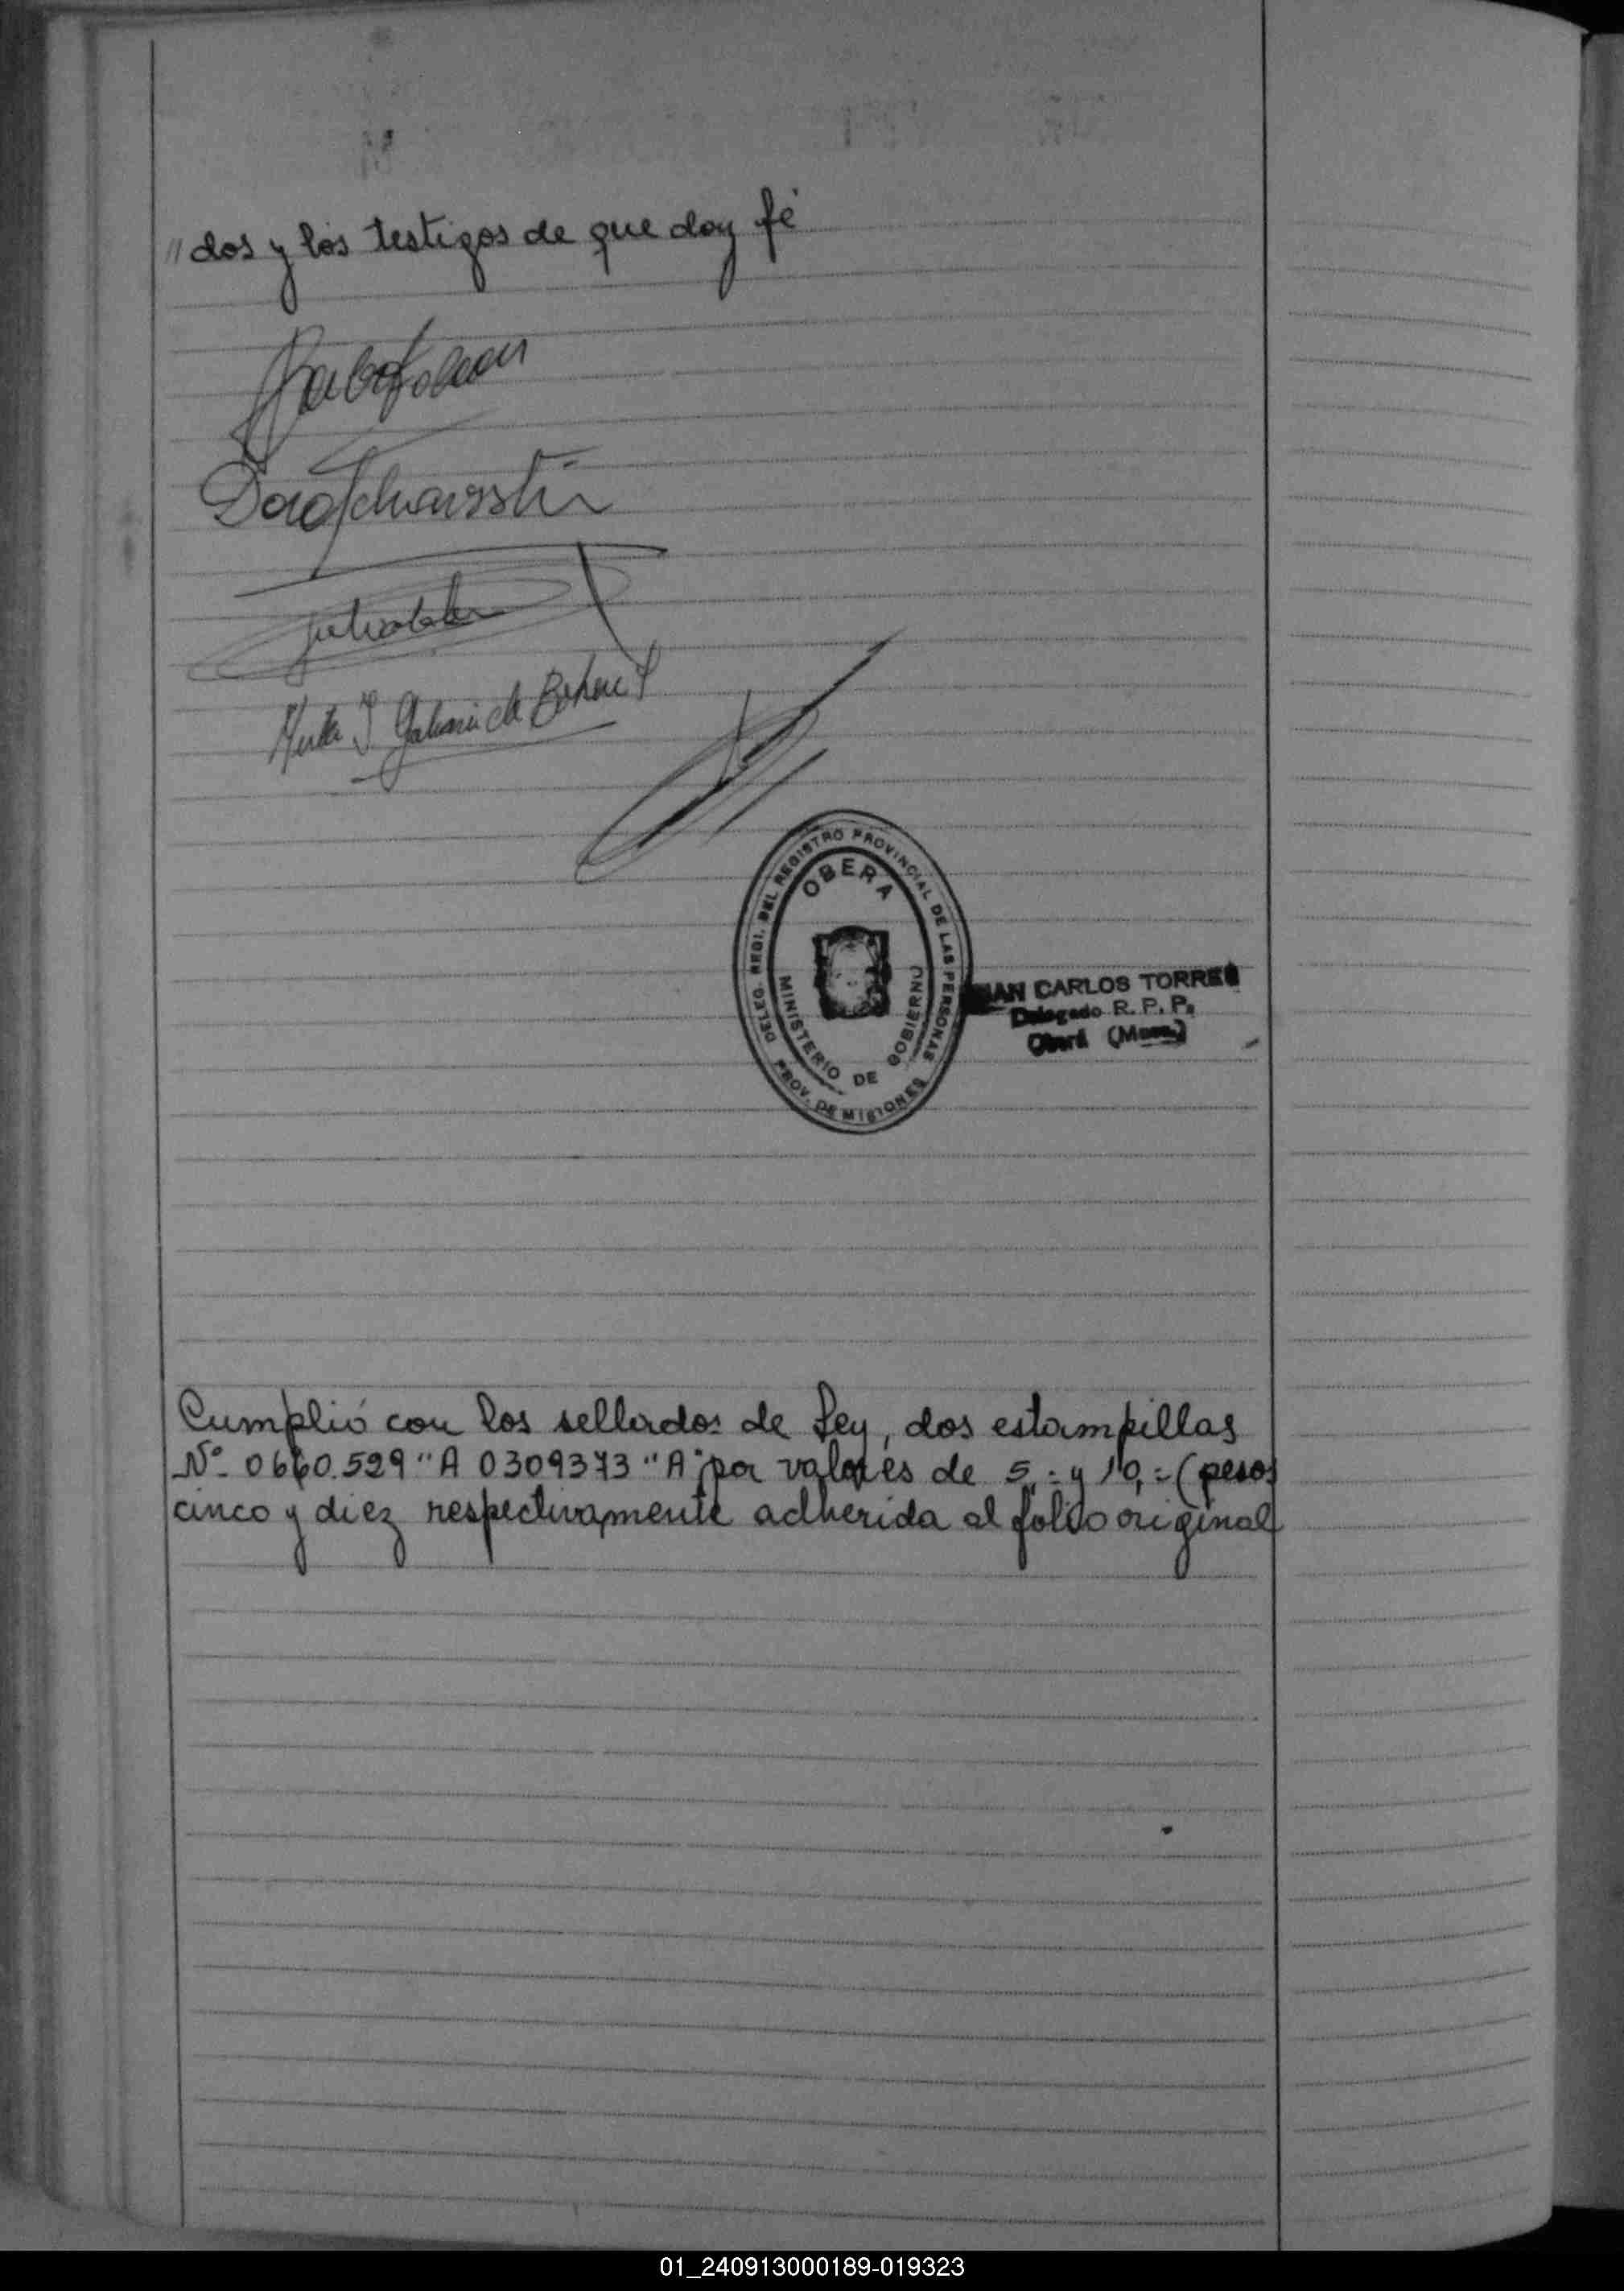 // dos y los testigos de que doy fé
Mirta I. Galeano de
DELEG. REGI. DEL REGISTRO PROVINCIAL DE LAS PERSONAS
PROV. DE MISIONES
OBERA
MINISTERIO DE GOBIERNO
JUAN CARLOS TORRES
Delegado R. P. P.
Oberá (Mnes.)
Cumplió con los sellados de Ley, dos estampillas
Nº- 0660.529 "A 0309373 "A" por valores de 5,= y 10,= (pesos
cinco y diez respectivamente adherida al folio original
01_240913000189-019323